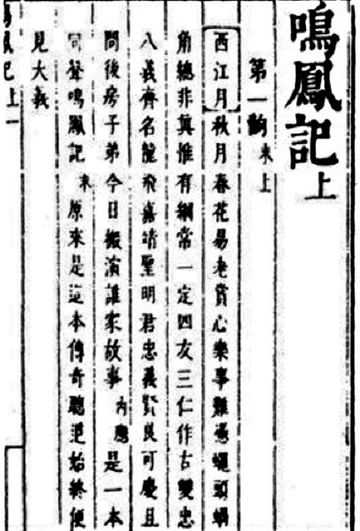 鳴鳳記上
第一齣 末上
[西江月]秋月春花易老賞心樂事難憑蠅頭蝸
角總非真惟有綱常一定四友三仁作古雙忠
八義齊名龍飛嘉靖聖明君忠義賢良可慶且
問後房子弟今日搬演誰家故事 内應 是一本
同聲鳴鳳記 末 原來是這本傳奇聽始終便
見大義
鳳記上 一